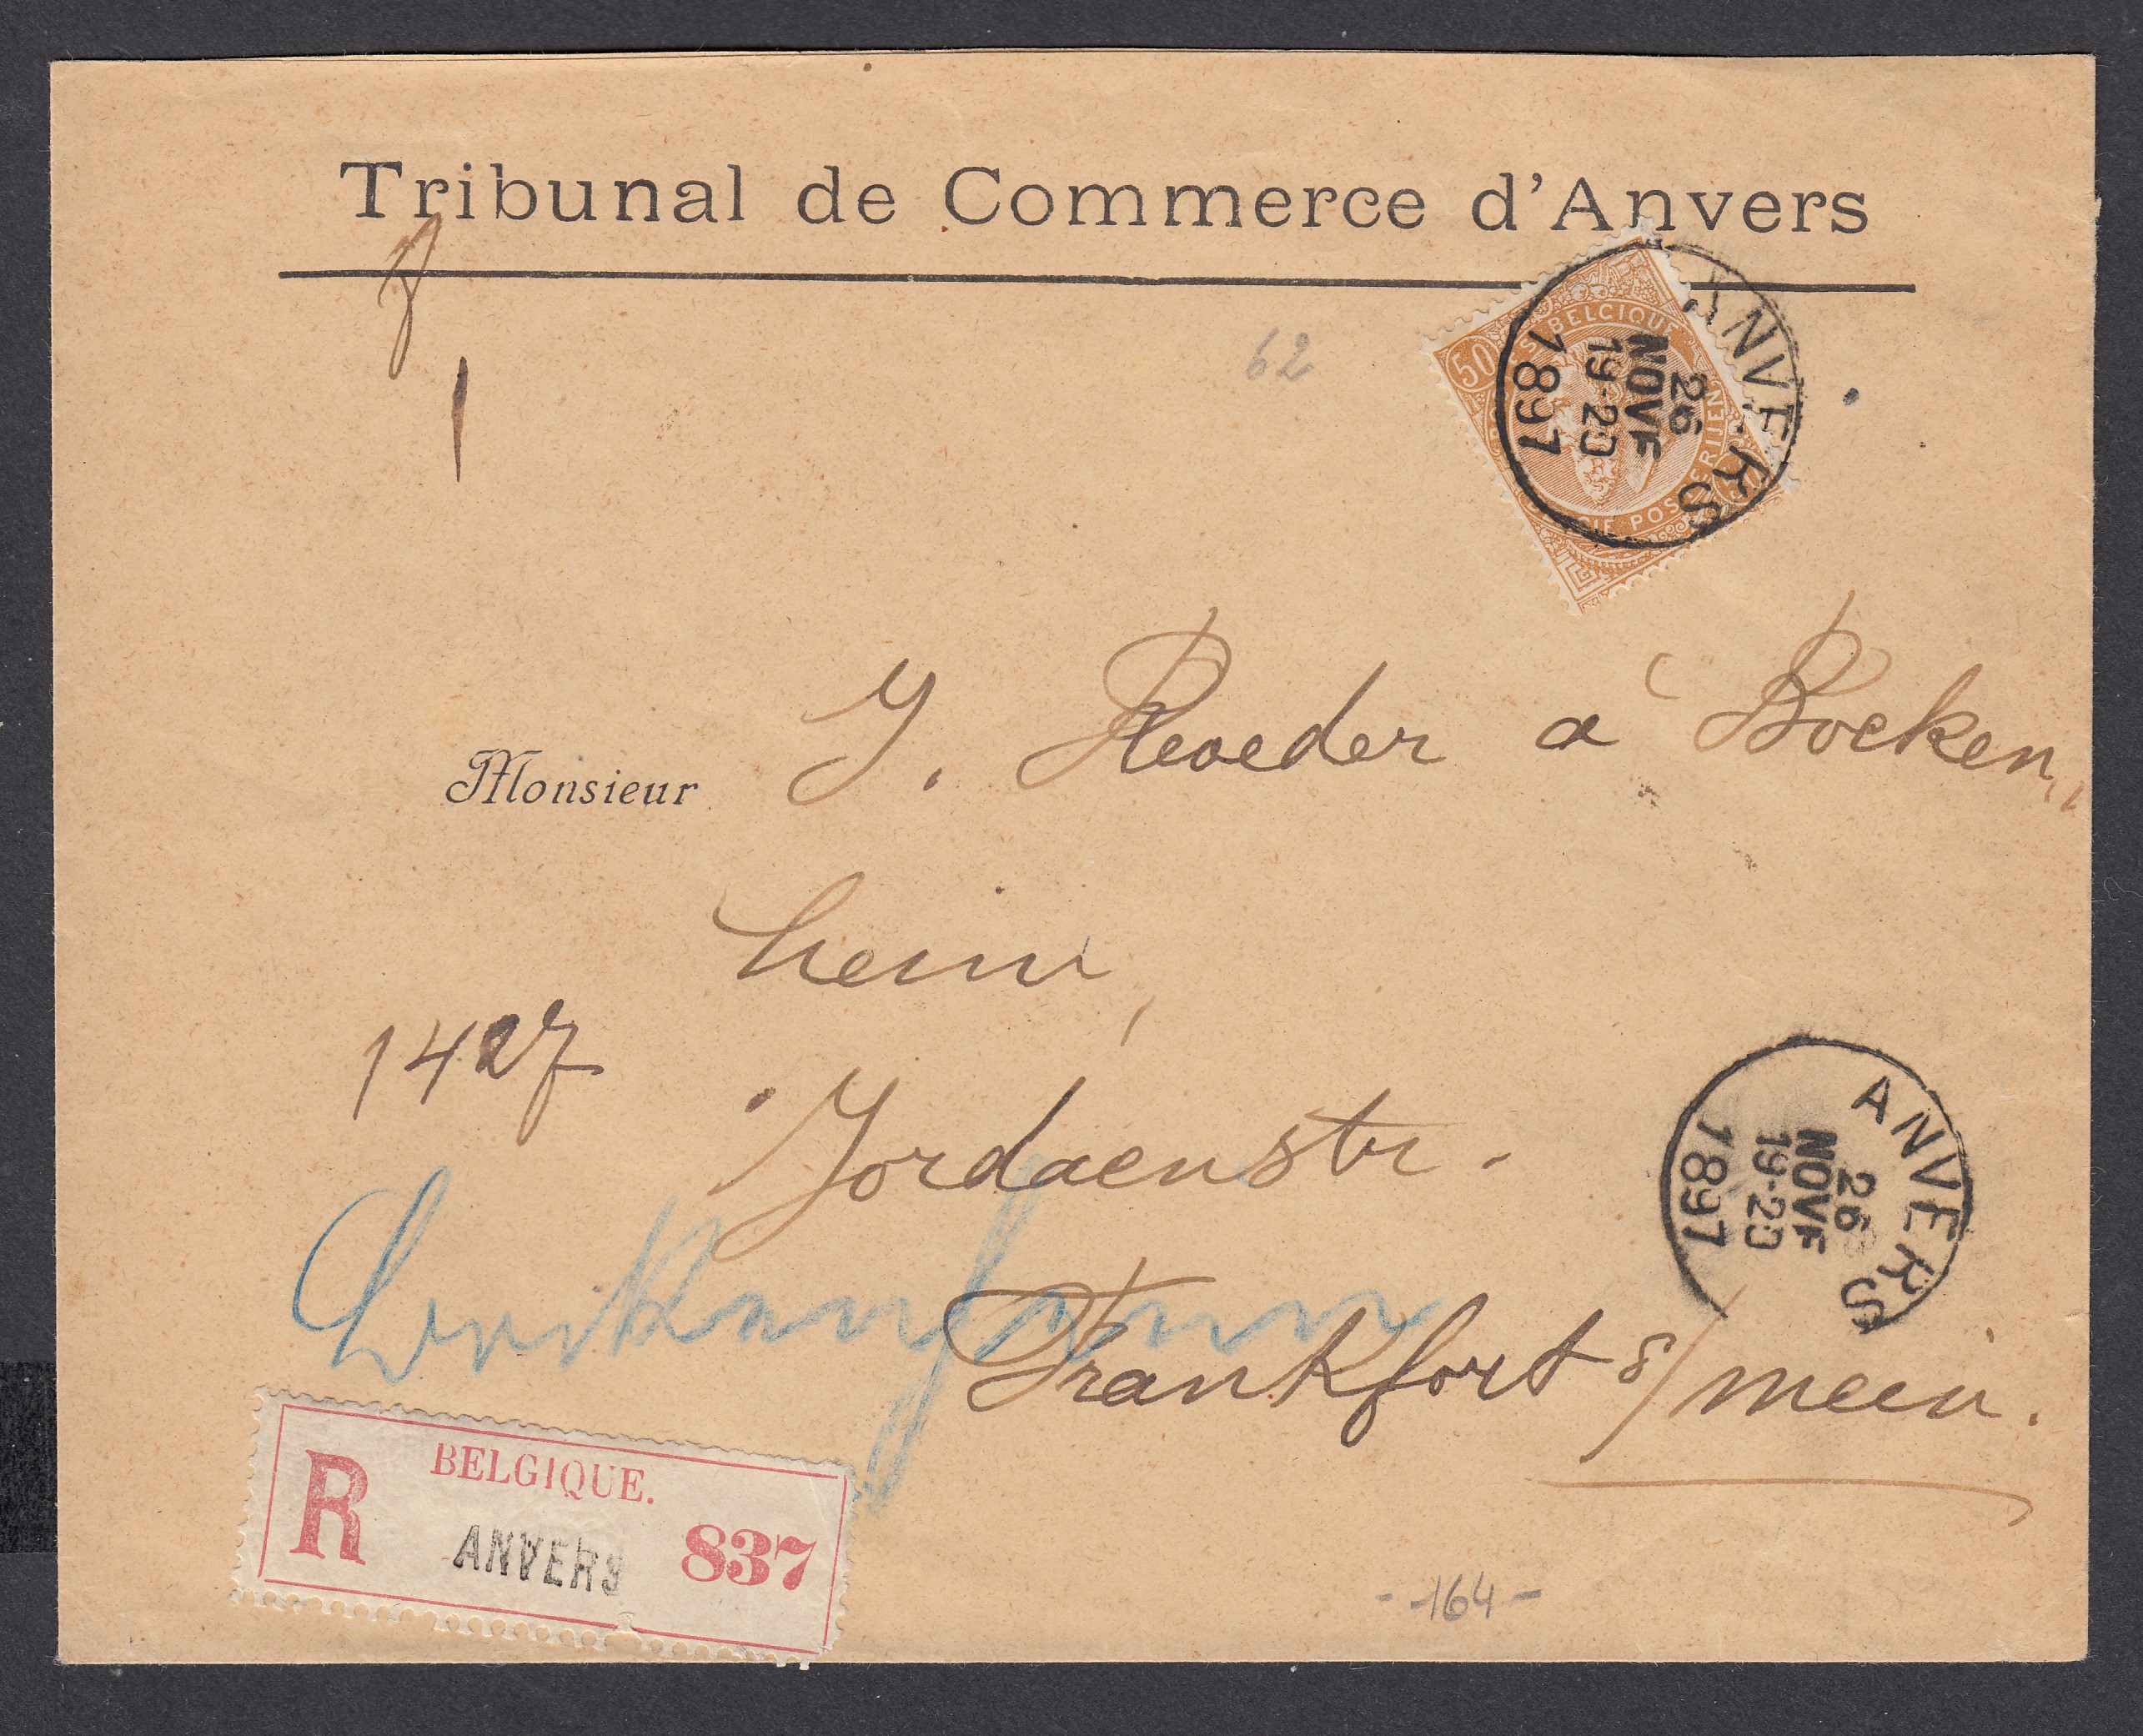 Tribunal de Commerce d'Anvers
1
62
50
BELGIQUE
ANVERS
26
NOVE
19-20
1897
Monsieur J. Roeder à Bocken,
heim,
1427
Jordaenstr.
Frankfort s/mein.
ANVERS
26
NOVE
19-20
1897
R BELGIQUE.
ANVERS 837
- 164 -